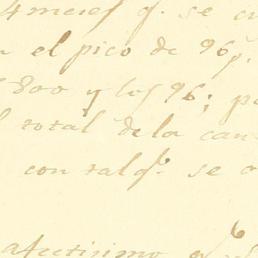 4 meses q.e se cu
el pico de 96 p.s
800 y los 96; po
total de la can
con tal q.e se
afectisimo